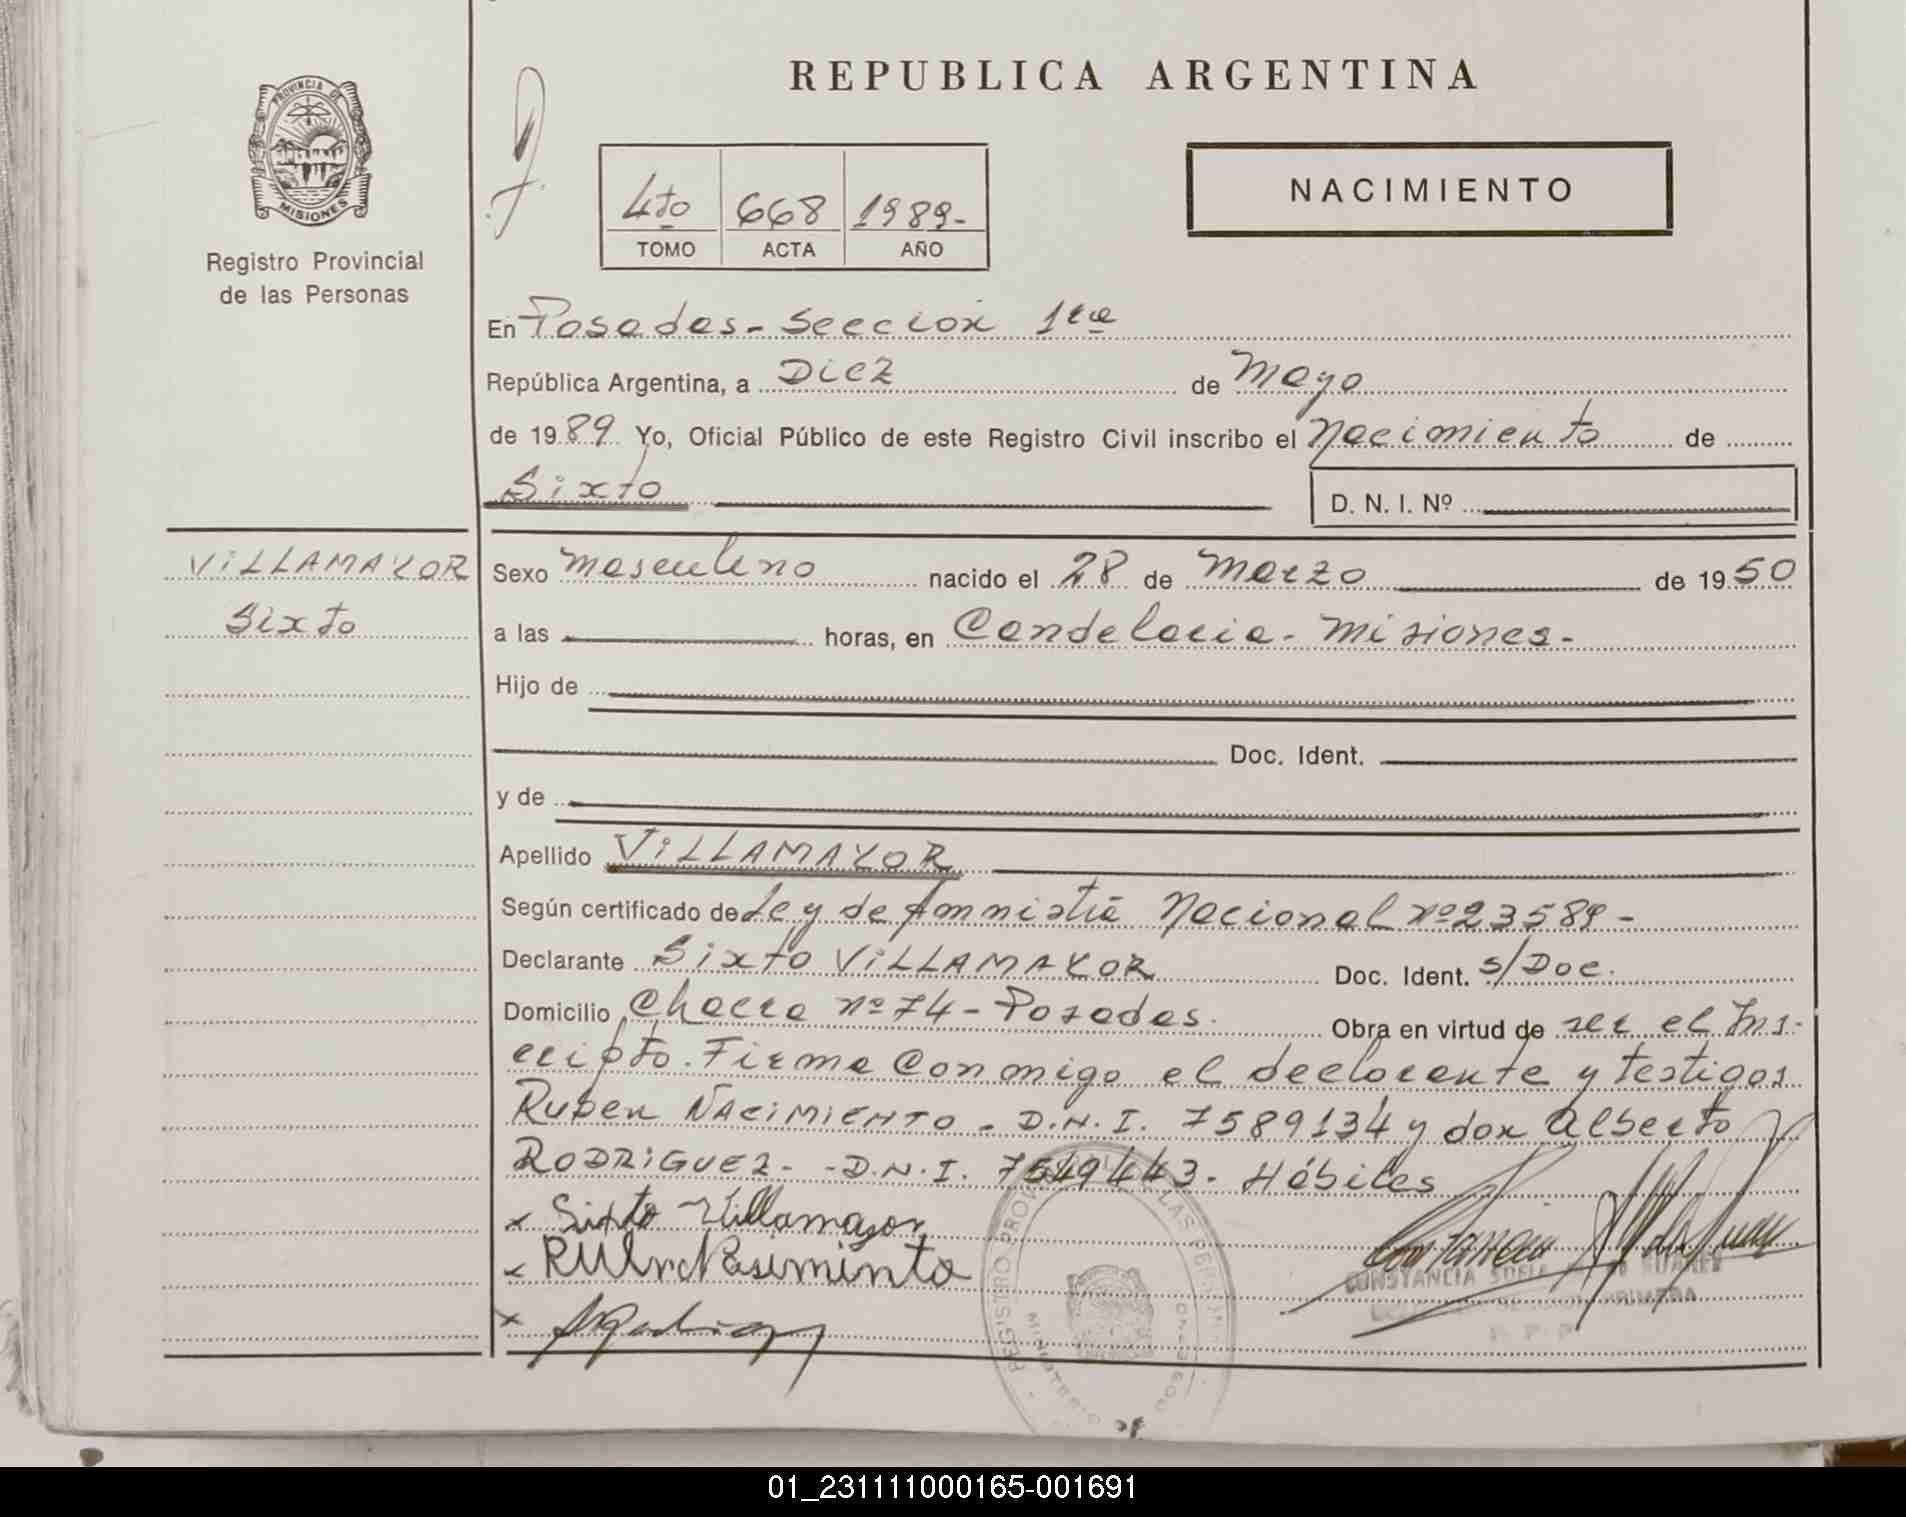 REPUBLICA ARGENTINA
PROVINCIA DE
MISIONES
Registro Provincial
de las Personas
4to 668 1989-
TOMO ACTA AÑO
NACIMIENTO
En Posadas - Sección 1ra
República Argentina, a Diez de Mayo
de 1989 Yo, Oficial Público de este Registro Civil inscribo el Nacimiento de
Sixto
D. N. I. Nº
VILLAMAYOR
Sixto
Sexo Masculino nacido el 28 de Marzo de 1950
a las horas, en Candelaria - Misiones -
Hijo de
Doc. Ident.
y de
Apellido VILLAMAYOR
Según certificado de Ley de Amnistia Nacional nº 23589 -
Declarante Sixto VILLAMAYOR Doc. Ident. s/Doc.
Domicilio Chacra nº 74 - Posadas. Obra en virtud de ser el Ins-
cripto. Firma Conmigo el declarante y testigos
Ruben NACIMIENTO - D.N.I. 7589134 y don Alberto
RODRIGUEZ - - D.N.I. 7549443. Hábiles
x Sixto Villamayor
x
x
REGISTRO PROVINCIAL LAS PERSONAS
CONSTANCIA SUAREZ
PRIMERA
01_231111000165-001691